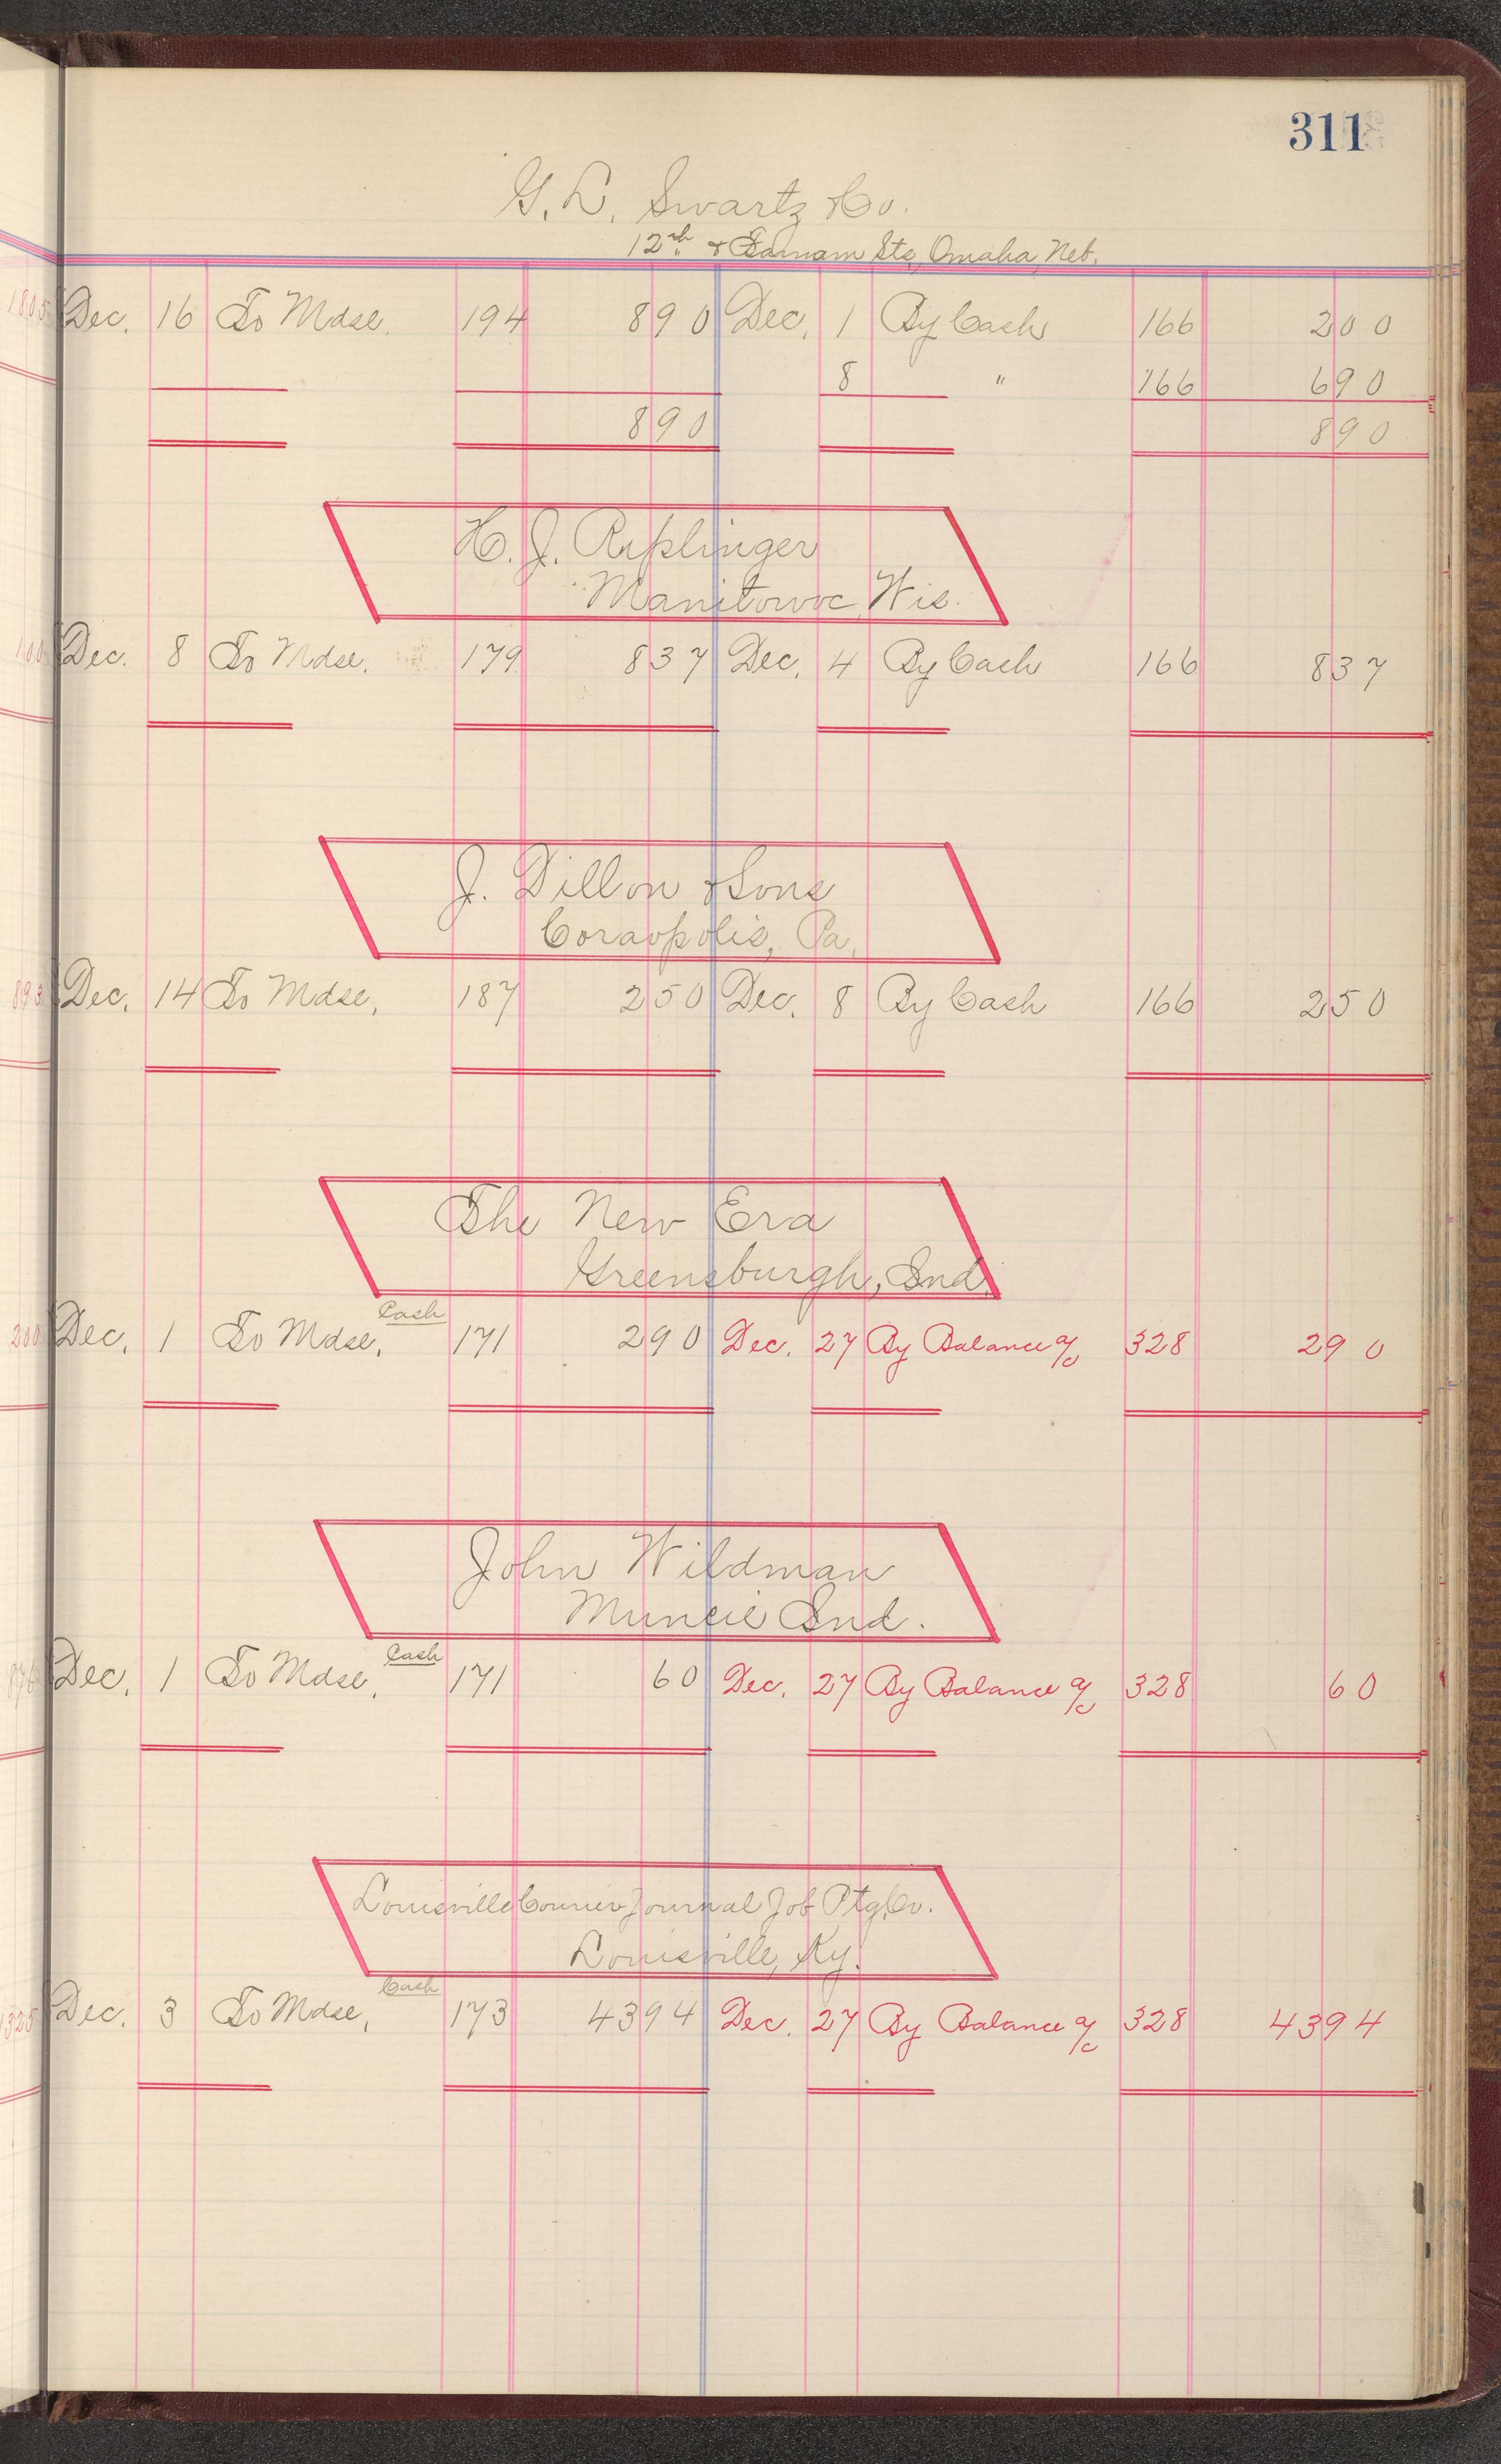 311
G. L. Swartz Co.
12th & Farnam Sts, Omaha, Neb.
1805 Dec. 16 To Mdse. 194 890 Dec. 1 By Cash 166 200
8 " 166 690
890 890
H. J. Riplinger
Manitowoc, Wis.
100 Dec. 8 To Mdse. 179 837 Dec. 4 By Cash 166 837
J. Dillon & Sons
Coraopolis, Pa.
893 Dec. 14 To Mdse, 187 250 Dec. 8 By Cash 166 250
The New Era
Greensburgh, Ind.
Cash
200 Dec. 1 To Mdse, 171 290 Dec. 27 By Balance a/c 328 290
John Wildman
Muncie Ind.
Cash
876 Dec. 1 To Mdse, 171 60 Dec. 27 By Balance a/c 328 60
Louisville Courier Journal Job Ptg. Co.
Louisville, Ky.
Cash
1325 Dec. 3 To Mdse, 173 4394 Dec. 27 By Balance a/c 328 4394